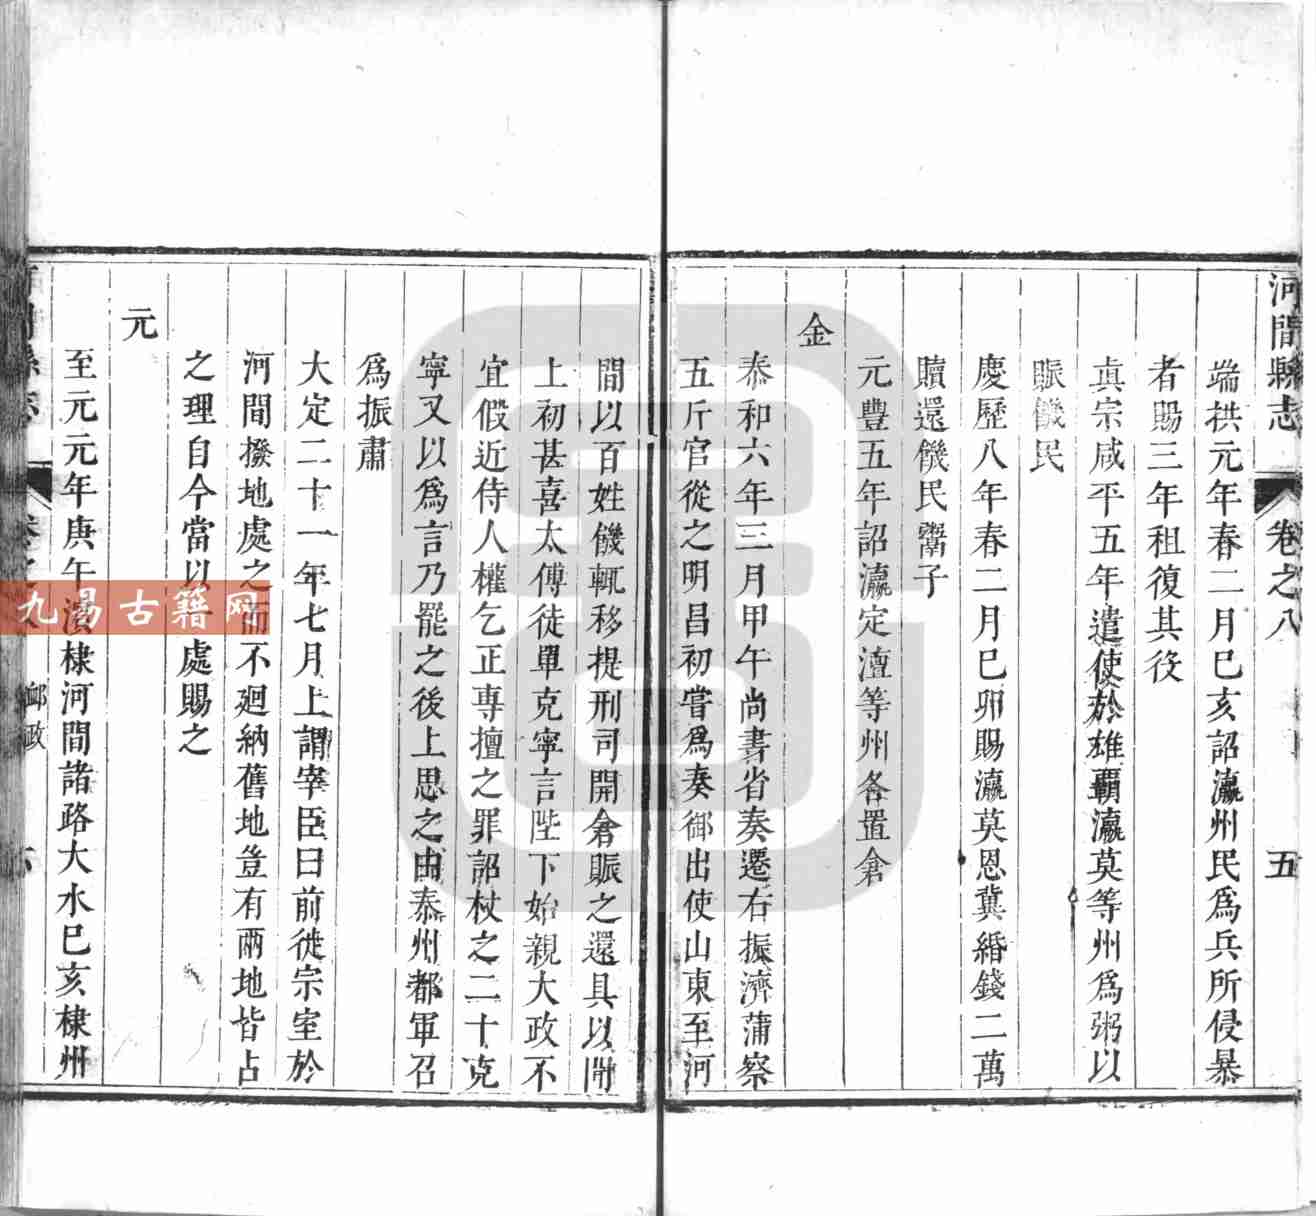 河間縣志 卷之八 五
端拱元年春二月巳亥詔瀛州民爲兵所侵暴
者賜三年租復其役
真宗咸平五年遣使於雄霸瀛莫等州爲粥以
賑饑民
慶歷八年春二月巳卯賜瀛莫恩冀緡錢二萬
贖還饑民鬻子
元豐五年詔瀛定澶等州各置倉
金
泰和六年三月甲午尚書省奏遷右振濟蒲察
五斤官從之明昌初嘗爲奏御出使山東至河
間以百姓饑輒移提刑司開倉賑之還具以聞
上初甚喜太傅徒單克寧言陛下始親大政不
宜假近侍人權乞正專擅之罪詔杖之二十克
寧又以爲言乃罷之後上思之由泰州都軍召
爲振肅
大定二十一年七月上謂宰臣曰前徙宗室於
河間撥地處之而不廻納舊地豈有兩地皆占
之理自今當以一處賜之
元
至元元年庚午濱棣河間諸路大水巳亥棣州
縣志 鄉政 六
九易古籍网